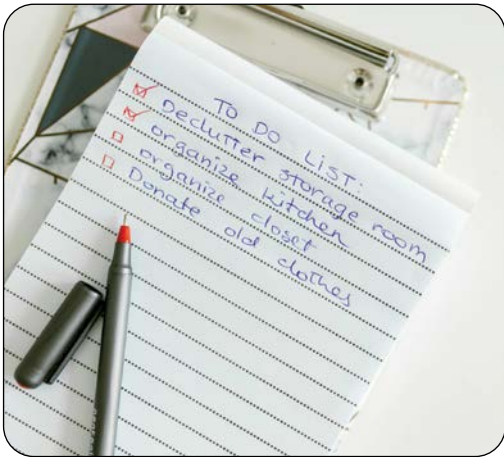 TO DO LIST:
Declutter storage room
organize kitchen
organize closet
Donate old clothes